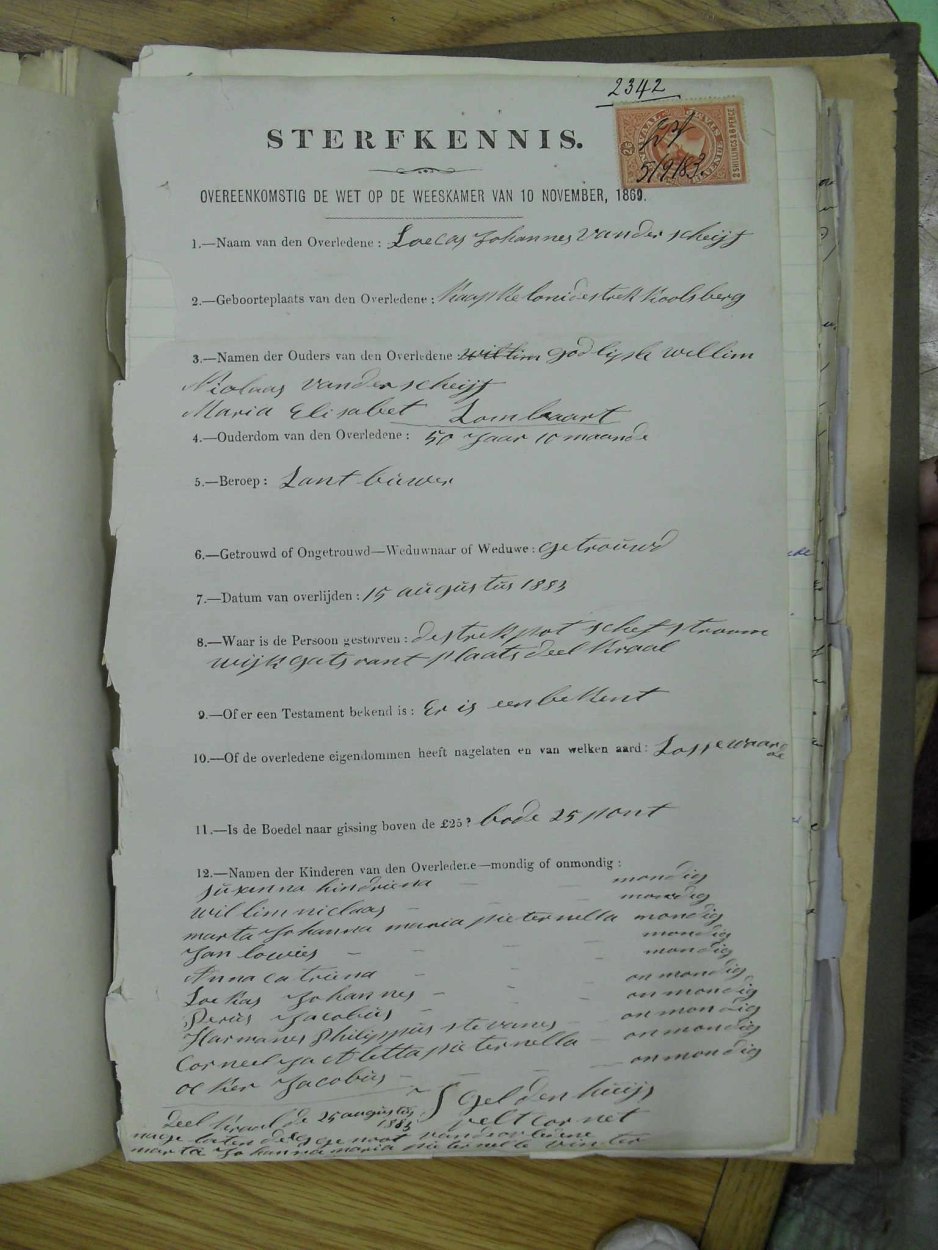 2342
STERFKENNIS.
5/9/83.
2 SHILLINGS & 6 PENCE
OVEREENKOMSTIG DE WET OP DE WEESKAMER VAN 10 NOVEMBER, 1869.
1.—Naam van den Overledene: Loecas Johannes van der scheijf
2.—Geboorteplaats van den Overledene:
3.—Namen der Ouders van den Overledene willim godliph willim
Niclaas van der scheijf
Maria Elisabet Lombaart
4.—Ouderdom van den Overledene: 50 Jaar 10 maande
5.—Beroep: Lant buwer
6.—Getrouwd of Ongetrouwd—Weduwnaar of Weduwe: getrouwd
7.—Datum van overlijden: 15 augustus 1883
8.—Waar is de Persoon gestorven: destrek pot schefstroom
wijk gatsrant plaats deel Kraal
9.—Of er een Testament bekend is: Er is een bekent
10.—Of de overledene eigendommen heeft nagelaten en van welken aard: Losse waarde
11.—Is de Boedel naar gissing boven de £25? bode 25 pont
12.—Namen der Kinderen van den Overledene—mondig of onmondig:
suxanna hindriena - - - mondig
willim niclaas - - - mondig
marta Johanna maria pieternella mondig
Jan lowies - - - mondig
Anna catriena - - - mondig
Loekas Johannes - - - onmondig
Jacobus - - - onmondig
Harmanes Philippus stevanes - onmondig
Corneelja aletta pieternella - onmondig
ocker Jacobus - - - onmondig
Deel Kraal de 25 augustus 1883 J Geldenhuijs
velt cornet
nage laten
marta Johanna maria pieternella